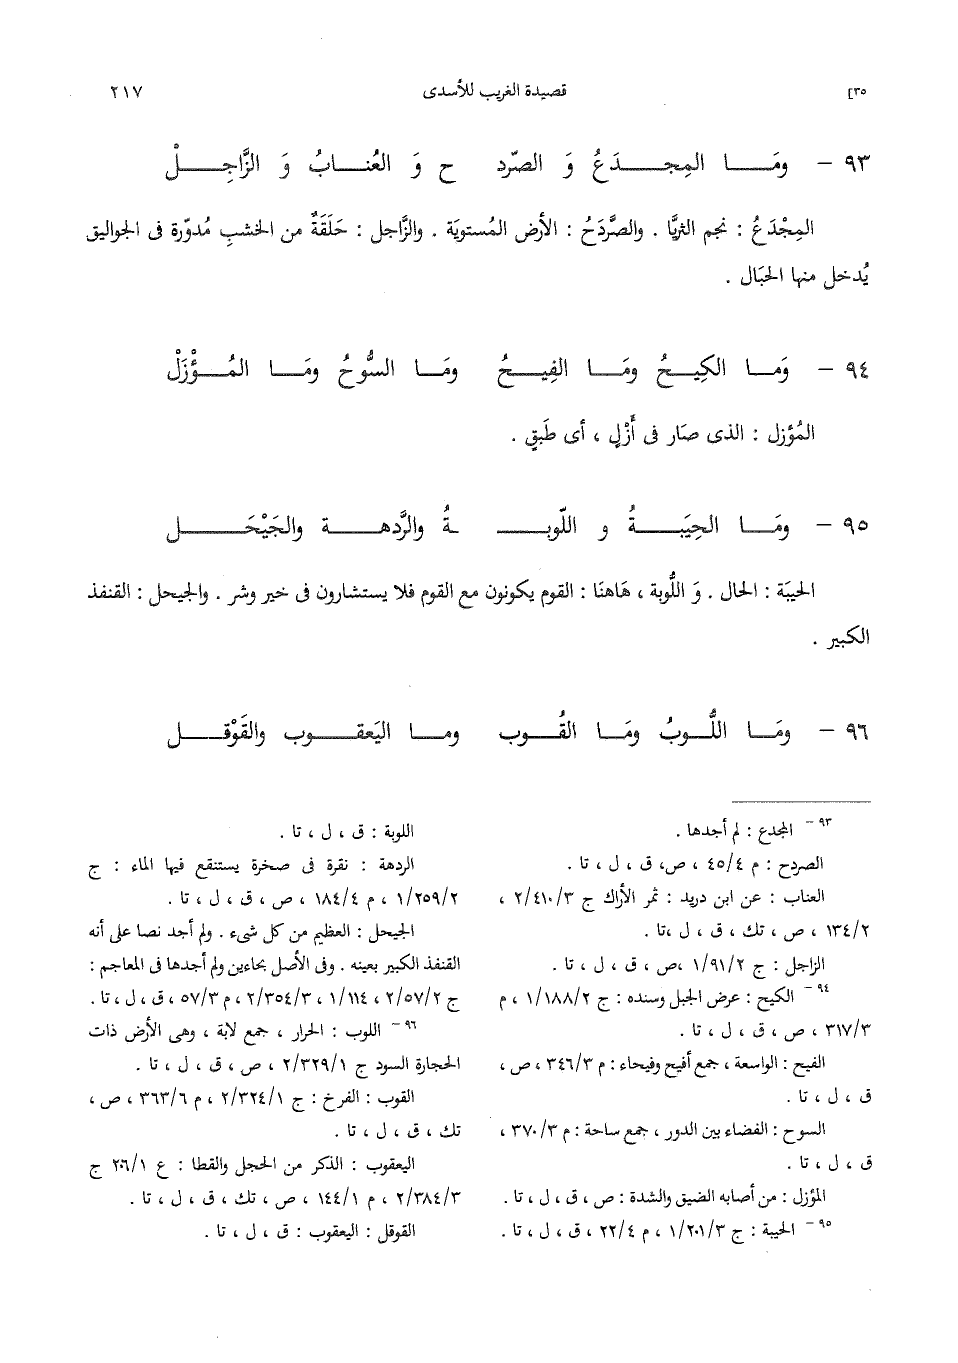 ٣٥] قصيدة الغريب للأسدى ٢١٧
٩٣ – ومَـا المِجـدَعُ وَ الصّرد ح وَ العُنـابُ وَ الزَّاجِـلْ
المِجْدَعُ : نجم الثريَّا . والصَّردَحُ : الأرض المُستويَة . والزَّاجل : حَلَقَةٌ من الخشبِ مُدوّرة فى الجواليق
يُدخل منها الحبَال .
٩٤ – وَمَـا الكِيـحُ ومَـا الفِيـحُ ومَـا السُّوحُ ومَـا المُـؤْزَلْ
المُؤزل : الذى صَار فى أَزْلٍ ، أى طَبَقٍ .
٩٥ – ومَـا الحِيَبَـةُ و اللّوبـ ـةُ والرَّدهـة والجَيْحَـل
الحيبَة : الحال . وَ اللُّوبة ، هَاهنَا : القوم يكونون مع القوم فلا يستشارون فى خير وشر . والجيحل : القنفذ
الكبير .
٩٦ – ومَـا اللُّـوبُ ومَـا القُـوب ومـا اليَعقـوب والقَوْقـل
٩٣ – المجدع : لم أجدها .
الصردح : م ٤٥/٤ ، ص، ق ، ل ، تا .
العناب : عن ابن دريد : ثمر الأراك ج ٢/٤١٠/٣ ،
١٣٤/٢ ، ص ، تك ، ق ، ل ،تا .
الزاجل : ج ١/٩١/٢ ،ص ، ق ، ل ، تا .
٩٤ – الكيح : عرض الجبل وسنده : ج ١/١٨٨/٢ ، م
٣١٧/٣ ، ص ، ق ، ل ، تا .
الفيح : الواسعة ، جمع أفيح وفيحاء : م ٣٤٦/٣ ، ص ،
ق ، ل ، تا .
السوح : الفضاء بين الدور ، جمع ساحة : م ٣٧٠/٣ ،
ق ، ل ، تا .
المؤزل : من أصابه الضيق والشدة : ص ، ق ، ل ، تا .
٩٥ – الحيبة : ج ١/٢٠١/٣ ، م ٢٢/٤ ، ق ، ل ، تا .
اللوبة : ق ، ل ، تا .
الردهة : نقرة فى صخرة يستنقع فيها الماء : ج
١/٢٥٩/٢ ، م ١٨٤/٤ ، ص ، ق ، ل ، تا .
الجيحل : العظيم من كل شىء . ولم أجد نصا على أنه
القنفذ الكبير بعينه . وفى الأصل بحاءين ولم أجدها فى المعاجم :
ج ٢/٥٧/٢ ، ١/١١٤ ، ٢/٣٥٤/٣ ، م ٥٧/٣ ، ق ، ل ، تا .
٩٦ – اللوب : الحرار ، جمع لابة ، وهى الأرض ذات
الحجارة السود ج ٢/٣٢٩/١ ، ص ، ق ، ل ، تا .
القوب : الفرخ : ج ٢/٣٢٤/١ ، م ٣٦٣/٦ ، ص ،
تك ، ق ، ل ، تا .
اليعقوب : الذكر من الحجل والقطا : ع ٢٠٦/١ ج
٢/٣٨٤/٣ ، م ١٤٤/١ ، ص ، تك ، ق ، ل ، تا .
القوقل : اليعقوب : ق ، ل ، تا .